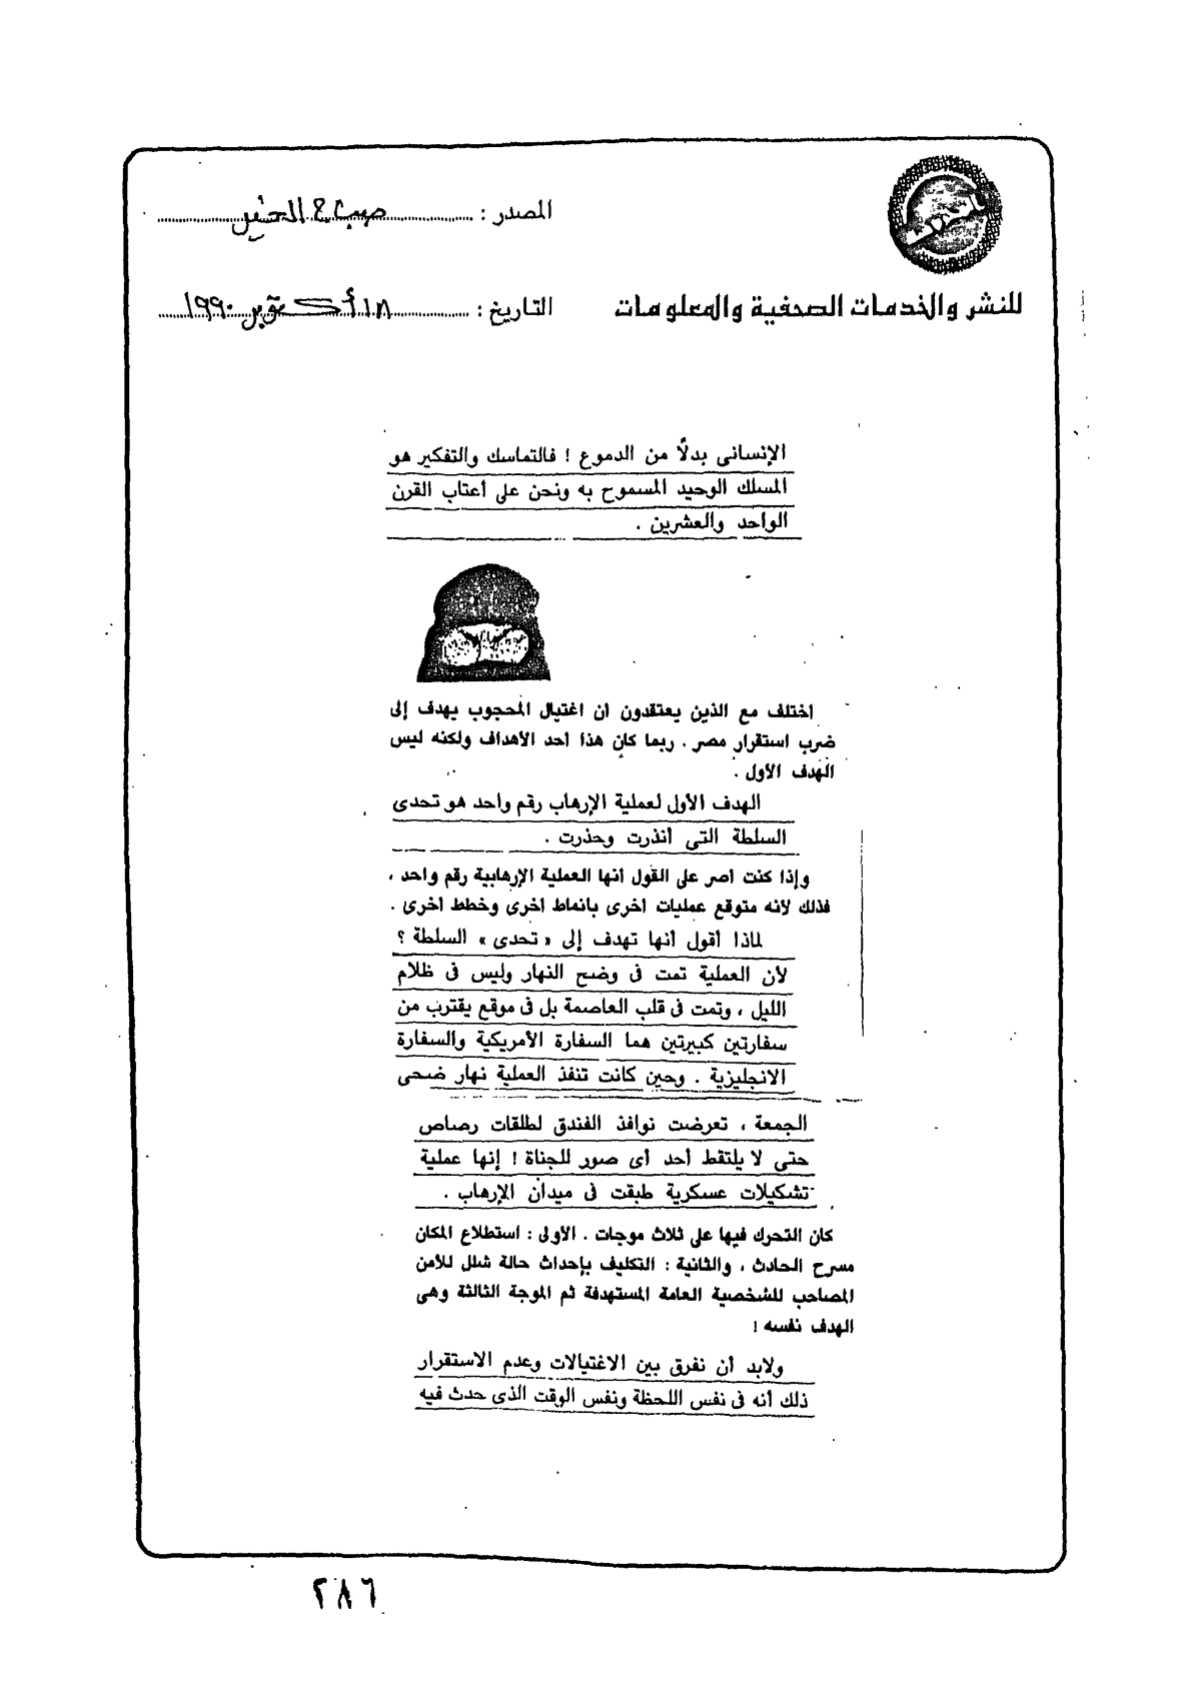 المصدر : صباح الخير
للنشر والخدمات الصحفية والمعلومات
التاريخ : ١٨ أكتوبر ١٩٩٠
الإنسانى بدلًا من الدموع ! فالتماسك والتفكير هو
المسلك الوحيد المسموح به ونحن على أعتاب القرن
الواحد والعشرين .
اختلف مع الذين يعتقدون ان اغتيال المحجوب يهدف إلى
ضرب استقرار مصر . ربما كان هذا احد الأهداف ولكنه ليس
الهدف الأول .
الهدف الأول لعملية الإرهاب رقم واحد هو تحدى
السلطة التى أنذرت وحذرت .
وإذا كنت اصر على القول أنها العملية الإرهابية رقم واحد ،
فذلك لانه متوقع عمليات اخرى بانماط اخرى وخطط اخرى .
لماذا أقول أنها تهدف إلى « تحدى » السلطة ؟
لأن العملية تمت فى وضح النهار وليس فى ظلام
الليل ، وتمت فى قلب العاصمة بل فى موقع يقترب من
سفارتين كبيرتين هما السفارة الأمريكية والسفارة
الانجليزية . وحين كانت تنفذ العملية نهار ضحى
الجمعة ، تعرضت نوافذ الفندق لطلقات رصاص
حتى لا يلتقط أحد أى صور للجناة ! إنها عملية
تشكيلات عسكرية طبقت فى ميدان الإرهاب .
كان التحرك فيها على ثلاث موجات . الأولى : استطلاع المكان
مسرح الحادث ، والثانية : التكليف بإحداث حالة شلل للأمن
المصاحب للشخصية العامة المستهدفة ثم الموجة الثالثة وهى
الهدف نفسه !
ولابد أن نفرق بين الاغتيالات وعدم الاستقرار
ذلك أنه فى نفس اللحظة ونفس الوقت الذى حدث فيه
٢٨٦